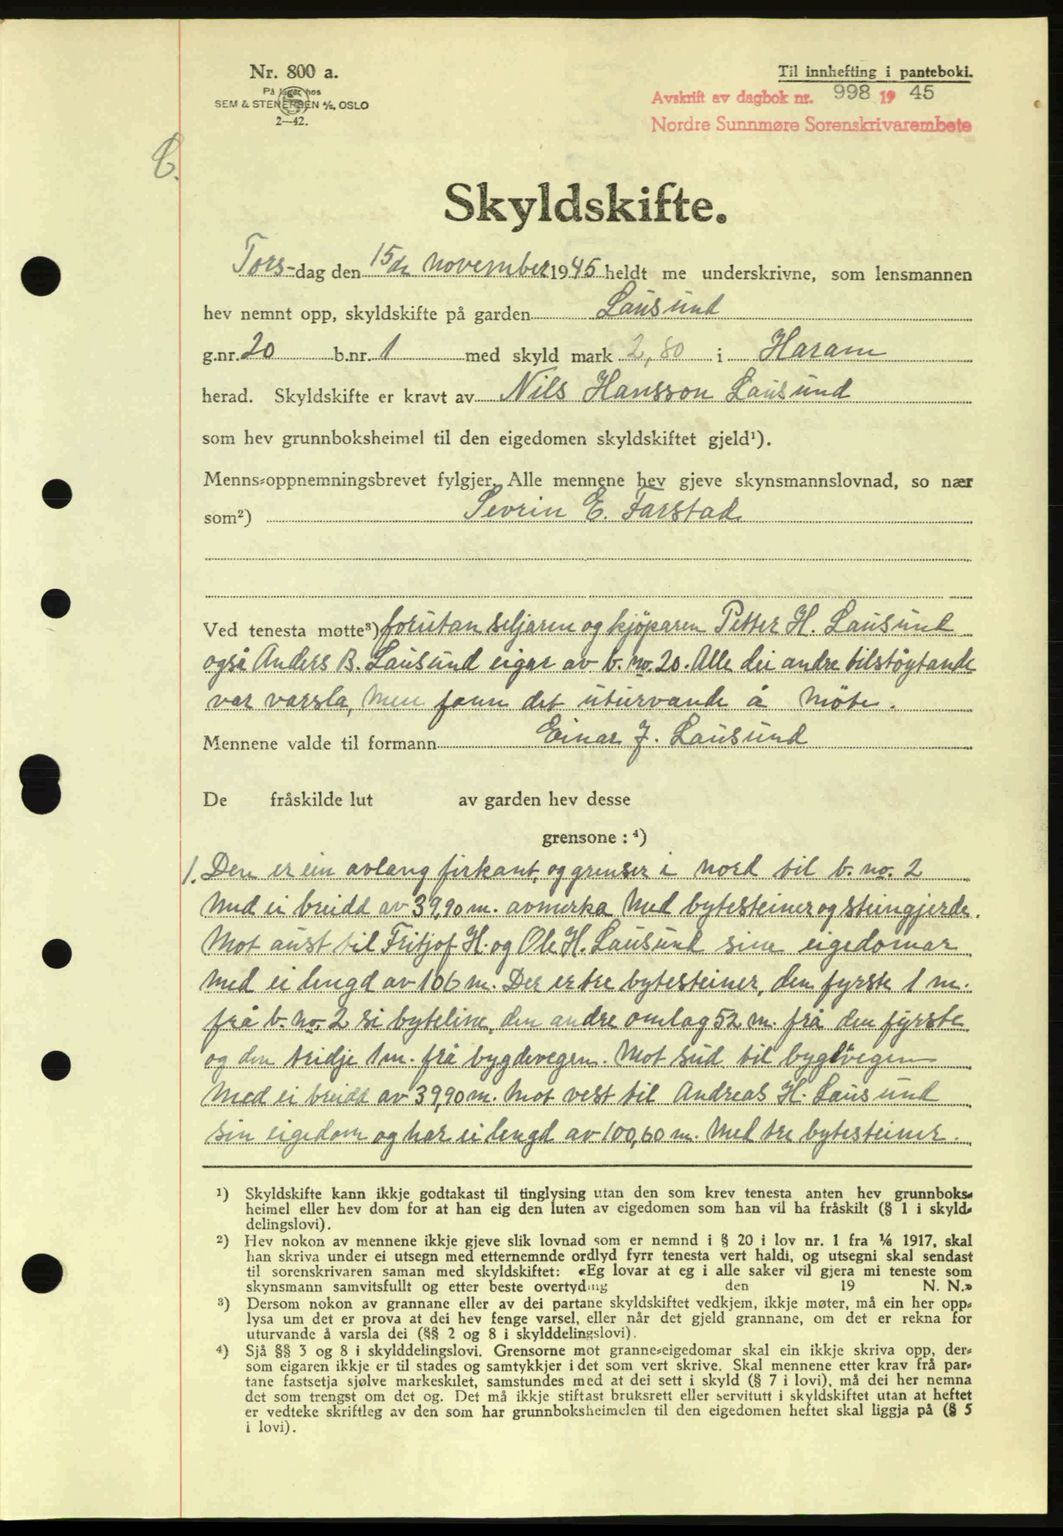 Nr. 800 a.
På lager hos
SEM & STENERSEN A/S, OSLO
2—42.
Til innhefting i panteboki.
Avskrift av dagbok nr. 998 1945
Nordre Sunnmøre Sorenskrivarembete
Skyldskifte.
Tors-dag den 15de november 1945 heldt me underskrivne, som lensmannen
hev nemnt opp, skyldskifte på garden Lausund
g.nr. 20 b.nr. 1 med skyld mark 2,80 i Haram
herad. Skyldskifte er kravt av Nils Hansson Lausund
som hev grunnboksheimel til den eigedomen skyldskiftet gjeld¹).
Menns-oppnemningsbrevet fylgjer. Alle mennene hev gjeve skynsmannslovnad, so nær
som²) Sevrin E. Farstad
Ved tenesta møtte³) forutan seljaren og kjöparen Petter H. Lausund
også Anders B. Lausund eigar av b. no. 20. Alle dei andre tilstöytande
var varsla, men fann det uturvande å möte.
Mennene valde til formann Einar J. Lausund
De fråskilde lut av garden hev desse
grensone : ⁴)
1. Den er ein avlang firkant, og grenser i nord til b. no. 2
med ei breidd av 39,90 m. avmerka med bytesteiner og steingjerde.
Mot aust til Fritjof H. og Ole H. Lausund sine eigedomar
med ei lengd av 106 m. Der er tre bytesteiner, den fyrste 1 m.
frå b. no. 2 si byteline, den andre omlag 52 m. frå den fyrste
og den tridje 1 m. frå bygdevegen. Mot sud til bygdvegen
med ei breidd av 39,90 m. Mot vest til Andreas H. Lausund
sin eigedom og har ei lengd av 100,60 m. Med tre bytesteiner.
¹) Skyldskifte kann ikkje godtakast til tinglysing utan den som krev tenesta anten hev grunnboks-
heimel eller hev dom for at han eig den luten av eigedomen som han vil ha fråskilt (§ 1 i skyld-
delingslovi).
²) Hev nokon av mennene ikkje gjeve slik lovnad som er nemnd i § 20 i lov nr. 1 fra 1/6 1917, skal
han skriva under ei utsegn med etternemnde ordlyd fyrr tenesta vert haldi, og utsegni skal sendast
til sorenskrivaren saman med skyldskiftet: «Eg lovar at eg i alle saker vil gjera mi teneste som
skynsmann samvitsfullt og etter beste overtyding den 19 N. N.»
³) Dersom nokon av grannane eller av dei partane skyldskiftet vedkjem, ikkje møter, må ein her opp-
lysa um det er prova at dei hev fenge varsel, eller når det gjeld grannane, om det er rekna for
uturvande å varsla dei (§§ 2 og 8 i skylddelingslovi).
⁴) Sjå §§ 3 og 8 i skylddelingslovi. Grensorne mot granne-eigedomar skal ein ikkje skriva opp, der-
som eigaren ikkje er til stades og samtykkjer i det som vert skrive. Skal mennene etter krav frå par-
tane fastsetja sjølve markeskilet, samstundes med at dei sett i skyld (§ 7 i lovi), må dei her nemna
det som trengst om det og. Det må ikkje stiftast bruksrett eller servitutt i skyldskiftet utan at heftet
er vedteke skriftleg av den som har grunnboksheimelen til den eigedomen heftet skal liggja på (§ 5
i lovi).